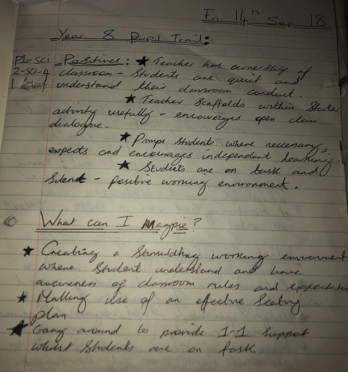 Fri 14th Sep 18
Year 8 Pupil Trail:
P1-SC1 Positives: ★ Teacher has ownership of
2-SC1-4 classroom - Students are quiet and
1 understand their classroom conduct.
★ Teacher Scaffolds within
activity usefully - encourages open class
dialogue.
★ Promps students where necessary,
expects and encourages independent learning.
★ Students are on task and
Silent - positive working environment.
What can I Magpie?
★ Creating a Stimulating working environment
where Student understand and have
awareness of classroom rules and expectations
★ Making use of an effective Seating
plan
★ Going around to provide 1-1 Support
whilst Students are on task.